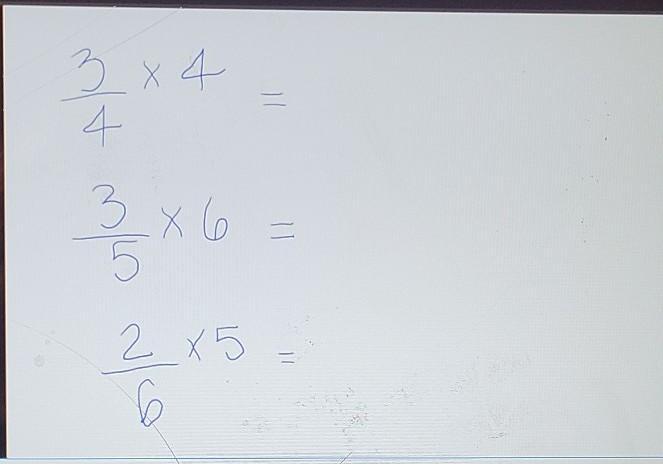 3/4 × 4 =
3/5 × 6 =
2/6 × 5 =